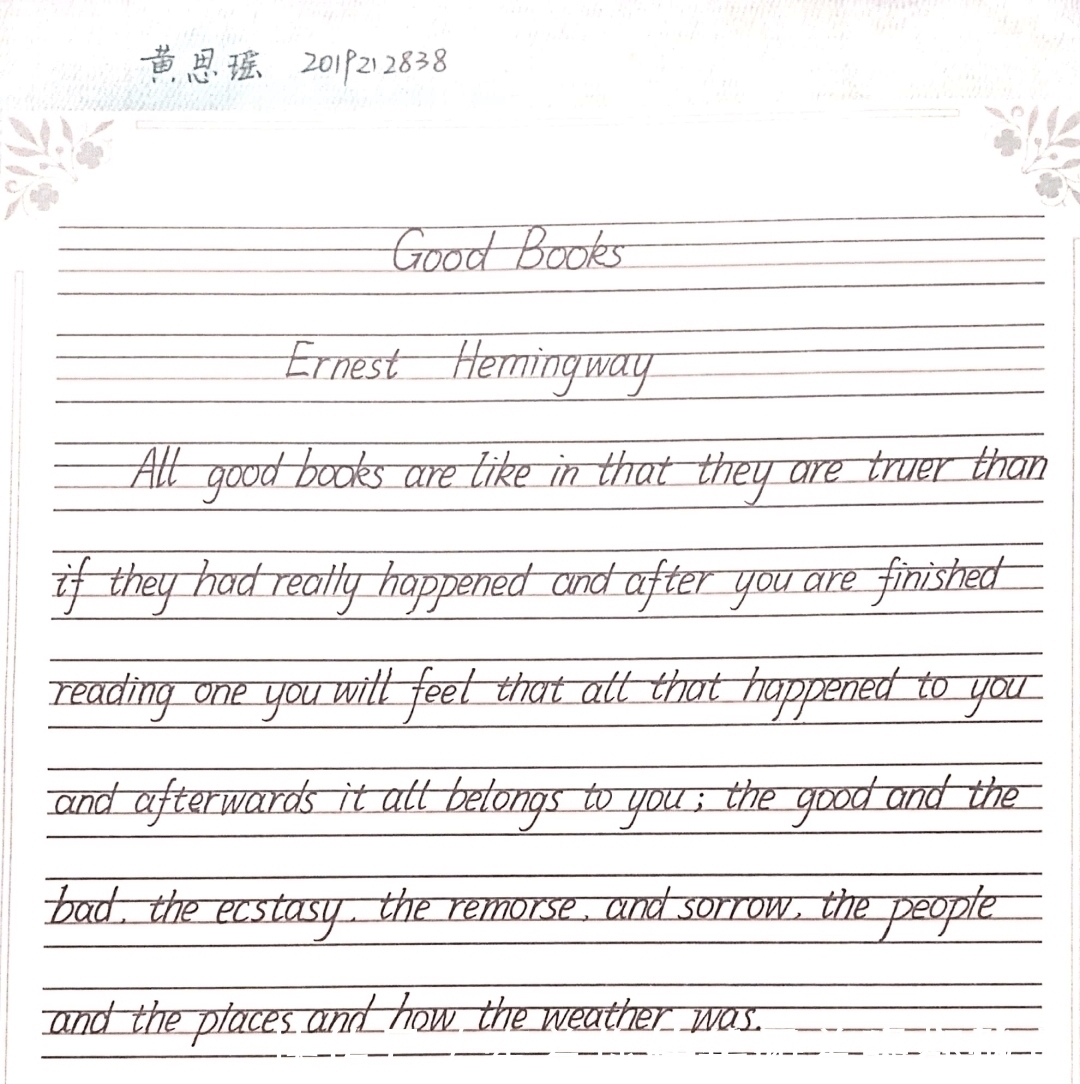 黄思瑶 2019212838
Good Books
Ernest Hemingway
All good books are like in that they are truer than
if they had really happened and after you are finished
reading one you will feel that all that happened to you
and afterwards it all belongs to you; the good and the
bad, the ecstasy, the remorse, and sorrow, the people
and the places and how the weather was.